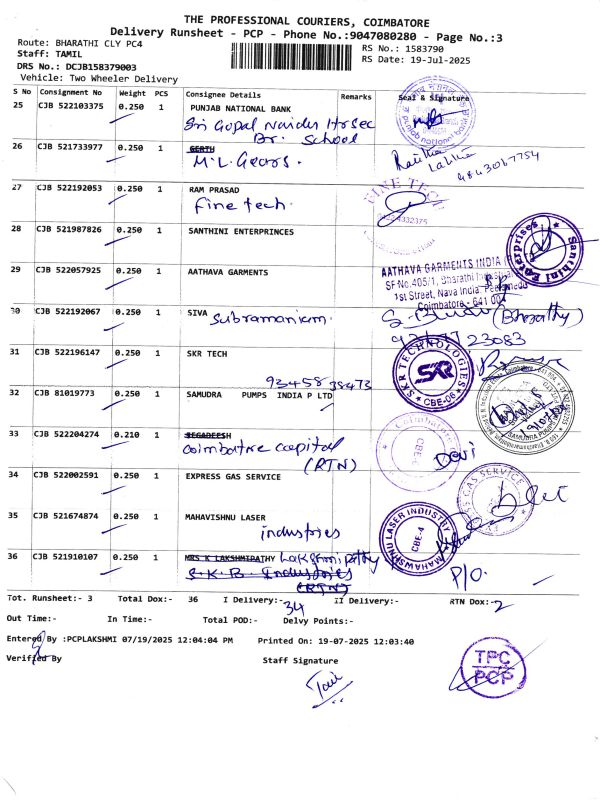 THE PROFESSIONAL COURIERS, COIMBATORE
Delivery Runsheet - PCP - Phone No.:9047080280 - Page No.:3
Route: BHARATHI CLY PC4
RS No.: 1583790
Staff: TAMIL
RS Date: 19-Jul-2025
DRS No.: DCJB158379003
Vehicle: Two Wheeler Delivery
S No Consignment No Weight PCS Consignee Details Remarks Seal & Signature
25 CJB 522103375 0.250 1 PUNJAB NATIONAL BANK
Sri Gopal Naidu Hrsec
Br. School
26 CJB 521733977 0.250 1 GERTH
M.L. Gears.
9843067754
27 CJB 522192053 0.250 1 RAM PRASAD
Fine tech.
FINE TECH
4332375
28 CJB 521987826 0.250 1 SANTHINI ENTERPRINCES
Santhini Enterprises
29 CJB 522057925 0.250 1 AATHAVA GARMENTS
AATHAVA GARMENTS INDIA
SF No.405/1, Bharathi
1st Street, Nava India
Coimbatore - 641 00
30 CJB 522192067 0.250 1 SIVA
Subramanium.
(Bharathy)
23083
31 CJB 522196147 0.250 1 SKR TECH
9345838473
SKR TECHNOLOGIES
SKR
CBE-06
32 CJB 81019773 0.250 1 SAMUDRA PUMPS INDIA P LTD
33 CJB 522204274 0.210 1 SEGADEESH
Coimbatore Capital
(RTN)
Coimbatore
CBE-
Devi
34 CJB 522002591 0.250 1 EXPRESS GAS SERVICE
GAS SERVICE
35 CJB 521674874 0.250 1 MAHAVISHNU LASER
industries
MAHAVISHNU LASER INDUSTRY
CBE-4
36 CJB 521910107 0.250 1 MRS K LAKSHMIPATHY Lakshmipathy
S.K.B. Industries
(RTN)
P/O.
Tot. Runsheet:- 3 Total Dox:- 36 I Delivery:- 34 II Delivery:- RTN Dox:- 2
Out Time:- In Time:- Total POD:- Delvy Points:-
Entered By :PCPLAKSHMI 07/19/2025 12:04:04 PM Printed On: 19-07-2025 12:03:40
Verified By Staff Signature
TPC
PCP